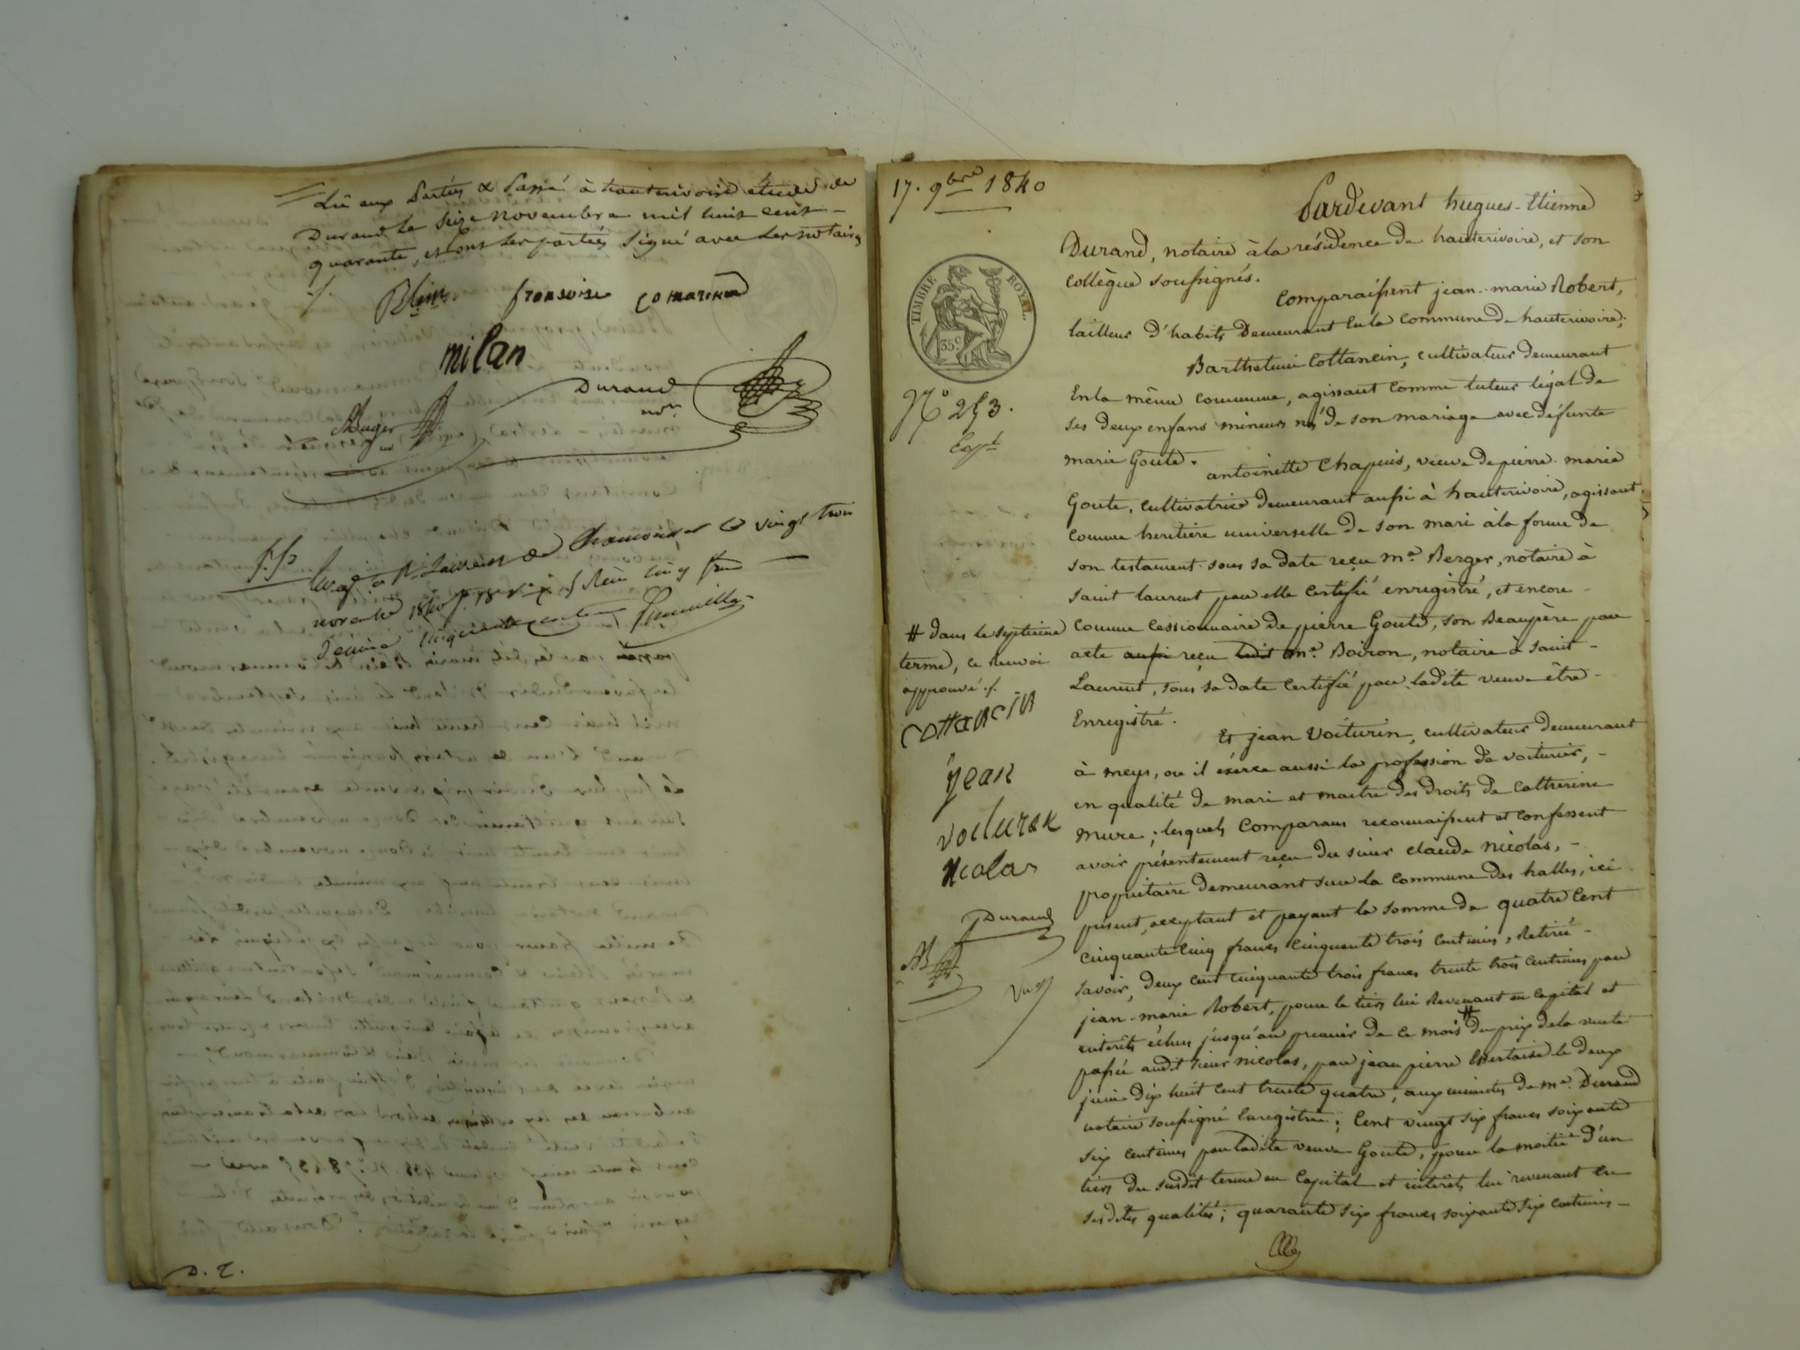 Lu aux Parties & Passé à hauterivoire étude de
Durand le seize novembre mil huit cent
quarante, et ont les parties signé avec les notaires
Blein françoise comarmond
milan
Durand
nore
Auger
Enregé à St Laurent de Chamousset le vingt trois
novembre 1840 reçu cinq francs
décime cinquante centimes
D. E.
17. 9bre 1840
Pardevant hugues-Etienne
Durand, notaire à la résidence de hauterivoire, et son
collègue soussignés.
Comparaissent jean-marie Robert,
tailleur d'habits Demeurant en la commune de hauterivoire;
TIMBRE ROYAL
35 c
Barthelemi Cottancin, cultivateur demeurant
En la même commune, agissant comme tuteur légal de
No 253.
ses deux enfans mineurs nés de son mariage avec défunte
marie Goute.
antoinette Chapuis, veuve de pierre marie
Goute, cultivatrice demeurant aussi à hauterivoire, agissant
comme heritière universelle de son mari à la forme de
son testament sous sa date reçu me. Berger, notaire à
saint laurent par elle certifié enregistré, et encore
comme cessionnaire de pierre Goute, son Beaupère par
acte aussi reçu ledit me. Boiron, notaire à saint-
Laurent, sous sa date certifié par ladite veuve être
Enregistré.
# dans le septième
terme, ce renvoi
approuvé ./.
cottancin
jean
voiturin
Nicolas
Durand
AB
Et jean Voiturin, cultivateur demeurant
à meys, ou il exerce aussi la profession de voiturier,
en qualité de mari et maitre des droits de Catherine
mure; lesquels Comparans reconnaissent et confessent
avoir présentement reçu du sieur claude nicolas,
propriétaire demeurant sur la commune des halles, ici
présent, acceptant et payant la somme de quatre cent
cinquante cinq francs cinquante trois centimes, Retirée
savoir, deux cent cinquante trois francs trente trois centimes par
jean-marie Robert, pour le tiers lui Revenant en capital et
intérêts échus jusqu'au premier de ce mois # du prix de la vente
passée audit sieur nicolas, par jean pierre le deux
juin dix huit cent trente quatre, aux minutes de me. Durand
notaire soussigné Enregistrée; Cent vingt six francs soixante
six centimes par ladite veuve Goute, pour la moitié d'un
tiers du susdit terme en Capital et intérêts lui revenant en
ses dites qualités; quarante six francs soixante six centimes